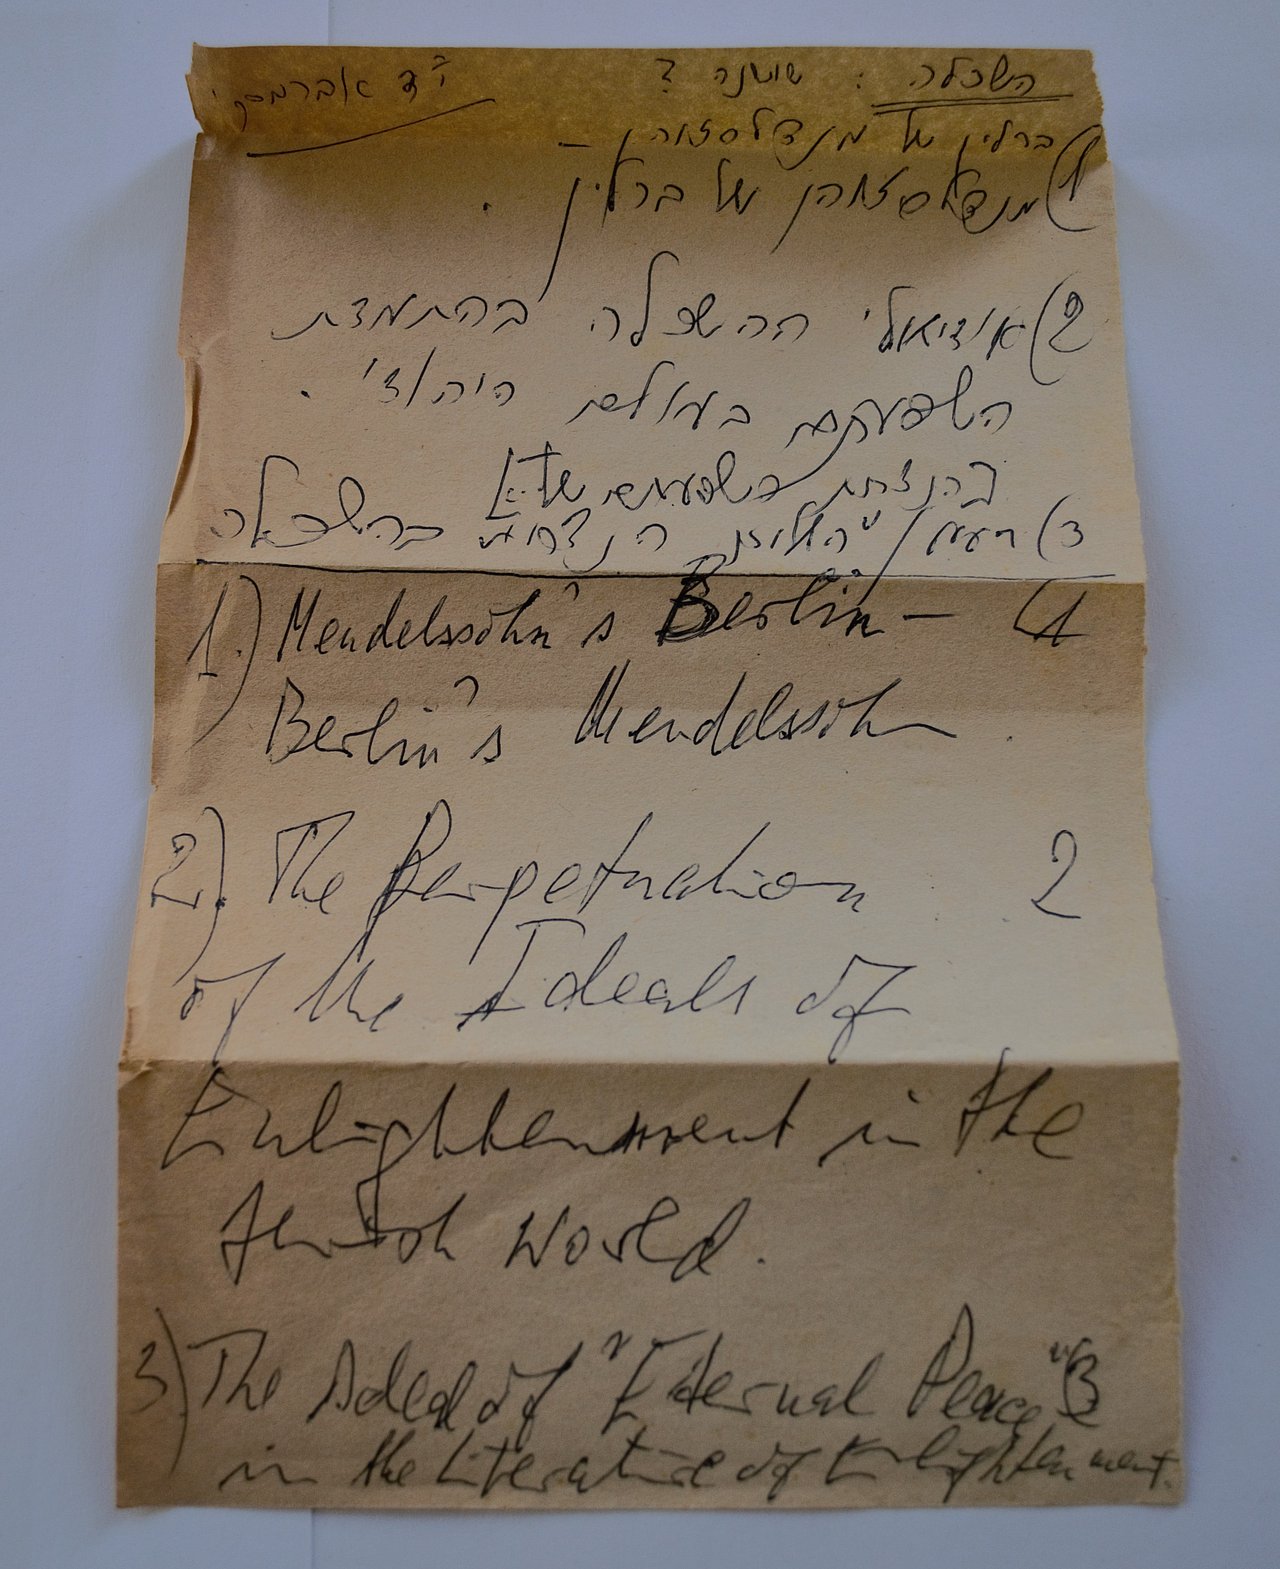 השכלה : שושנה ?
ברלין של מנדלסזוהן –
1) מנדלסזוהן של ברלין .
2) אידיאלי ההשכלה בהתמדת
השפעתם בעולם היהודי .
השפעתם של
3) הנצחי בהשכלה
1.) Mendelssohn's Berlin – 1
Berlin's Mendelssohn .
2.) The Perpetuation 2
of the Ideals of
Enlightenment in the
Jewish World .
3) The Ideal of "Eternal Peace" 3
in the Literature of Enlightenment.